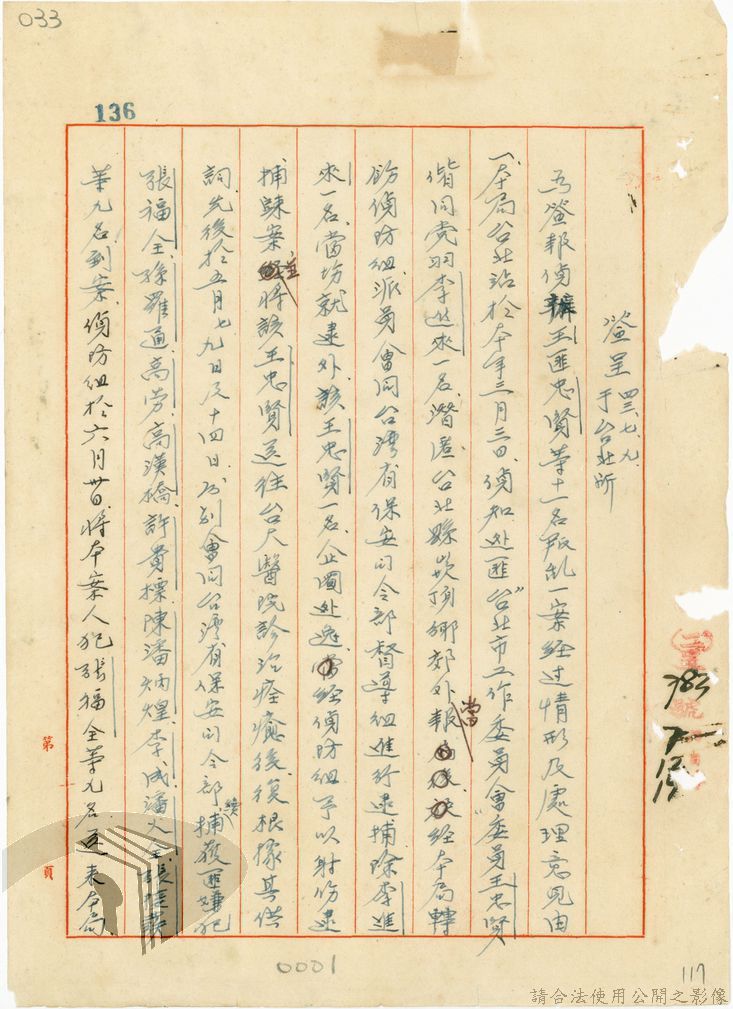 033
136
簽呈 四三、七、九、
于台北所
為簽報偵辦王匪忠賢等十一名叛乱一案経过情形及處理意見由
一、本局台北站於本年三月三日、偵知逃匪“台北市工作委員會”委員王忠賢
偕同党羽李進來一名、潛匿台北縣崁頂鄉郊外、當報経本局轉
飭偵防組派員會同台灣省保安司令部督導組進行逮捕、除李進
來一名、當場就逮外、該王忠賢一名、企圖逃逸、経偵防組予以射伤逮
捕歸案、並將該王忠賢送往台大醫院診治痊癒後、復根據其供
詞、先後於五月七、九日及十四日、分別會同台灣省保安司令部、續捕獲匪嫌犯
張福全、孫羅通、高芳、高漢橋、許貴標、陳潘炳煌、李成、潘火全、張
等九名到案、偵防組於六月卅日將本案人犯張福全等九名逐來本局、
第 頁
0001
117
請合法使用公開之影像